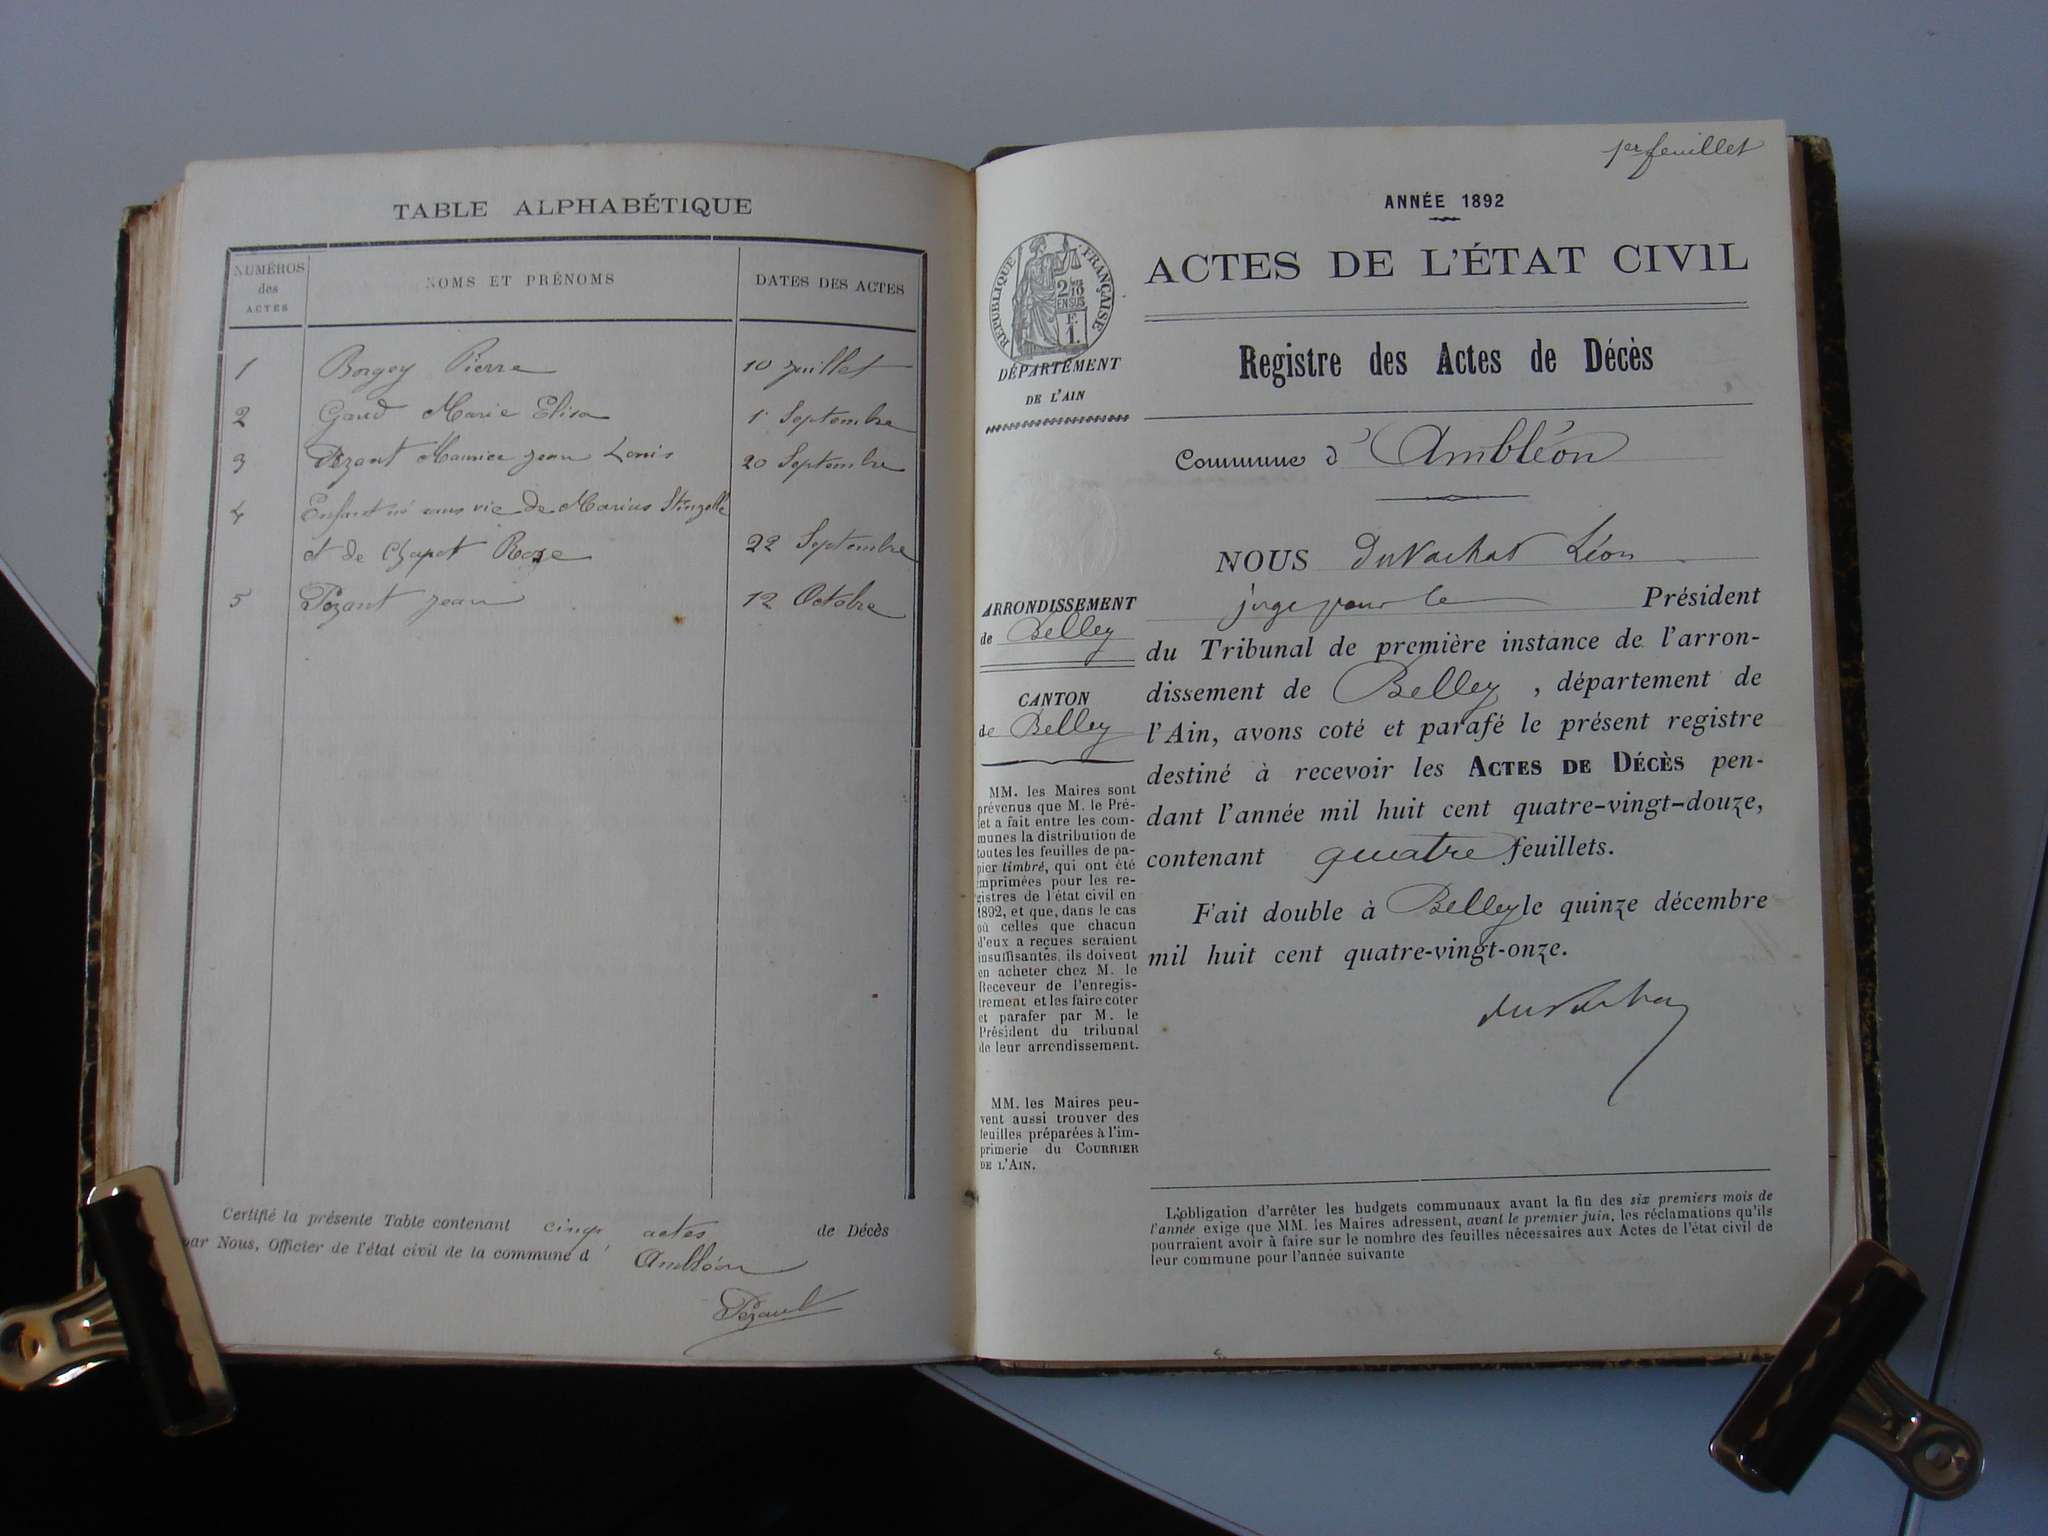 TABLE ALPHABÉTIQUE
NUMÉROS des ACTES
NOMS ET PRÉNOMS
DATES DES ACTES
1 Borgey Pierre 10 juillet
2 Gaud Marie Elisa 1r Septembre
3 Pézant Maurice Jean Louis 20 Septembre
4 Enfant né sans vie de Marius
et de Chapot Roze 22 Septembre
5 Pézant Jean 12 Octobre
Certifié la présente Table contenant cinq actes de Décès
par Nous, Officier de l'état civil de la commune d' Ambléon
Pézant
1er feuillet
ANNÉE 1892
ACTES DE L'ÉTAT CIVIL
RÉPUBLIQUE FRANÇAISE
2/10 EN SUS
F. 1.
DÉPARTEMENT
DE L'AIN
Registre des Actes de Décès
Commune d' Ambléon
ARRONDISSEMENT
de Belley
CANTON
de Belley
MM. les Maires sont
prévenus que M. le Pré-
fet a fait entre les com-
munes la distribution de
toutes les feuilles de pa-
pier timbré, qui ont été
imprimées pour les re-
gistres de l'état civil en
1892, et que, dans le cas
où celles que chacun
d'eux a reçues seraient
insuffisantes, ils doivent
en acheter chez M. le
Receveur de l'enregis-
trement et les faire coter
et parafer par M. le
Président du tribunal
de leur arrondissement.
MM. les Maires peu-
vent aussi trouver des
feuilles préparées à l'im-
primerie du COURRIER
DE L'AIN.
NOUS duVachat Léon
juge pour le Président
du Tribunal de première instance de l'arron-
dissement de Belley, département de
l'Ain, avons coté et parafé le présent registre
destiné à recevoir les ACTES DE DÉCÈS pen-
dant l'année mil huit cent quatre-vingt-douze,
contenant quatre feuillets.
Fait double à Belley le quinze décembre
mil huit cent quatre-vingt-onze.
duVachat
L'obligation d'arrêter les budgets communaux avant la fin des six premiers mois de
l'année exige que MM. les Maires adressent, avant le premier juin, les réclamations qu'ils
pourraient avoir à faire sur le nombre des feuilles nécessaires aux Actes de l'état civil de
leur commune pour l'année suivante